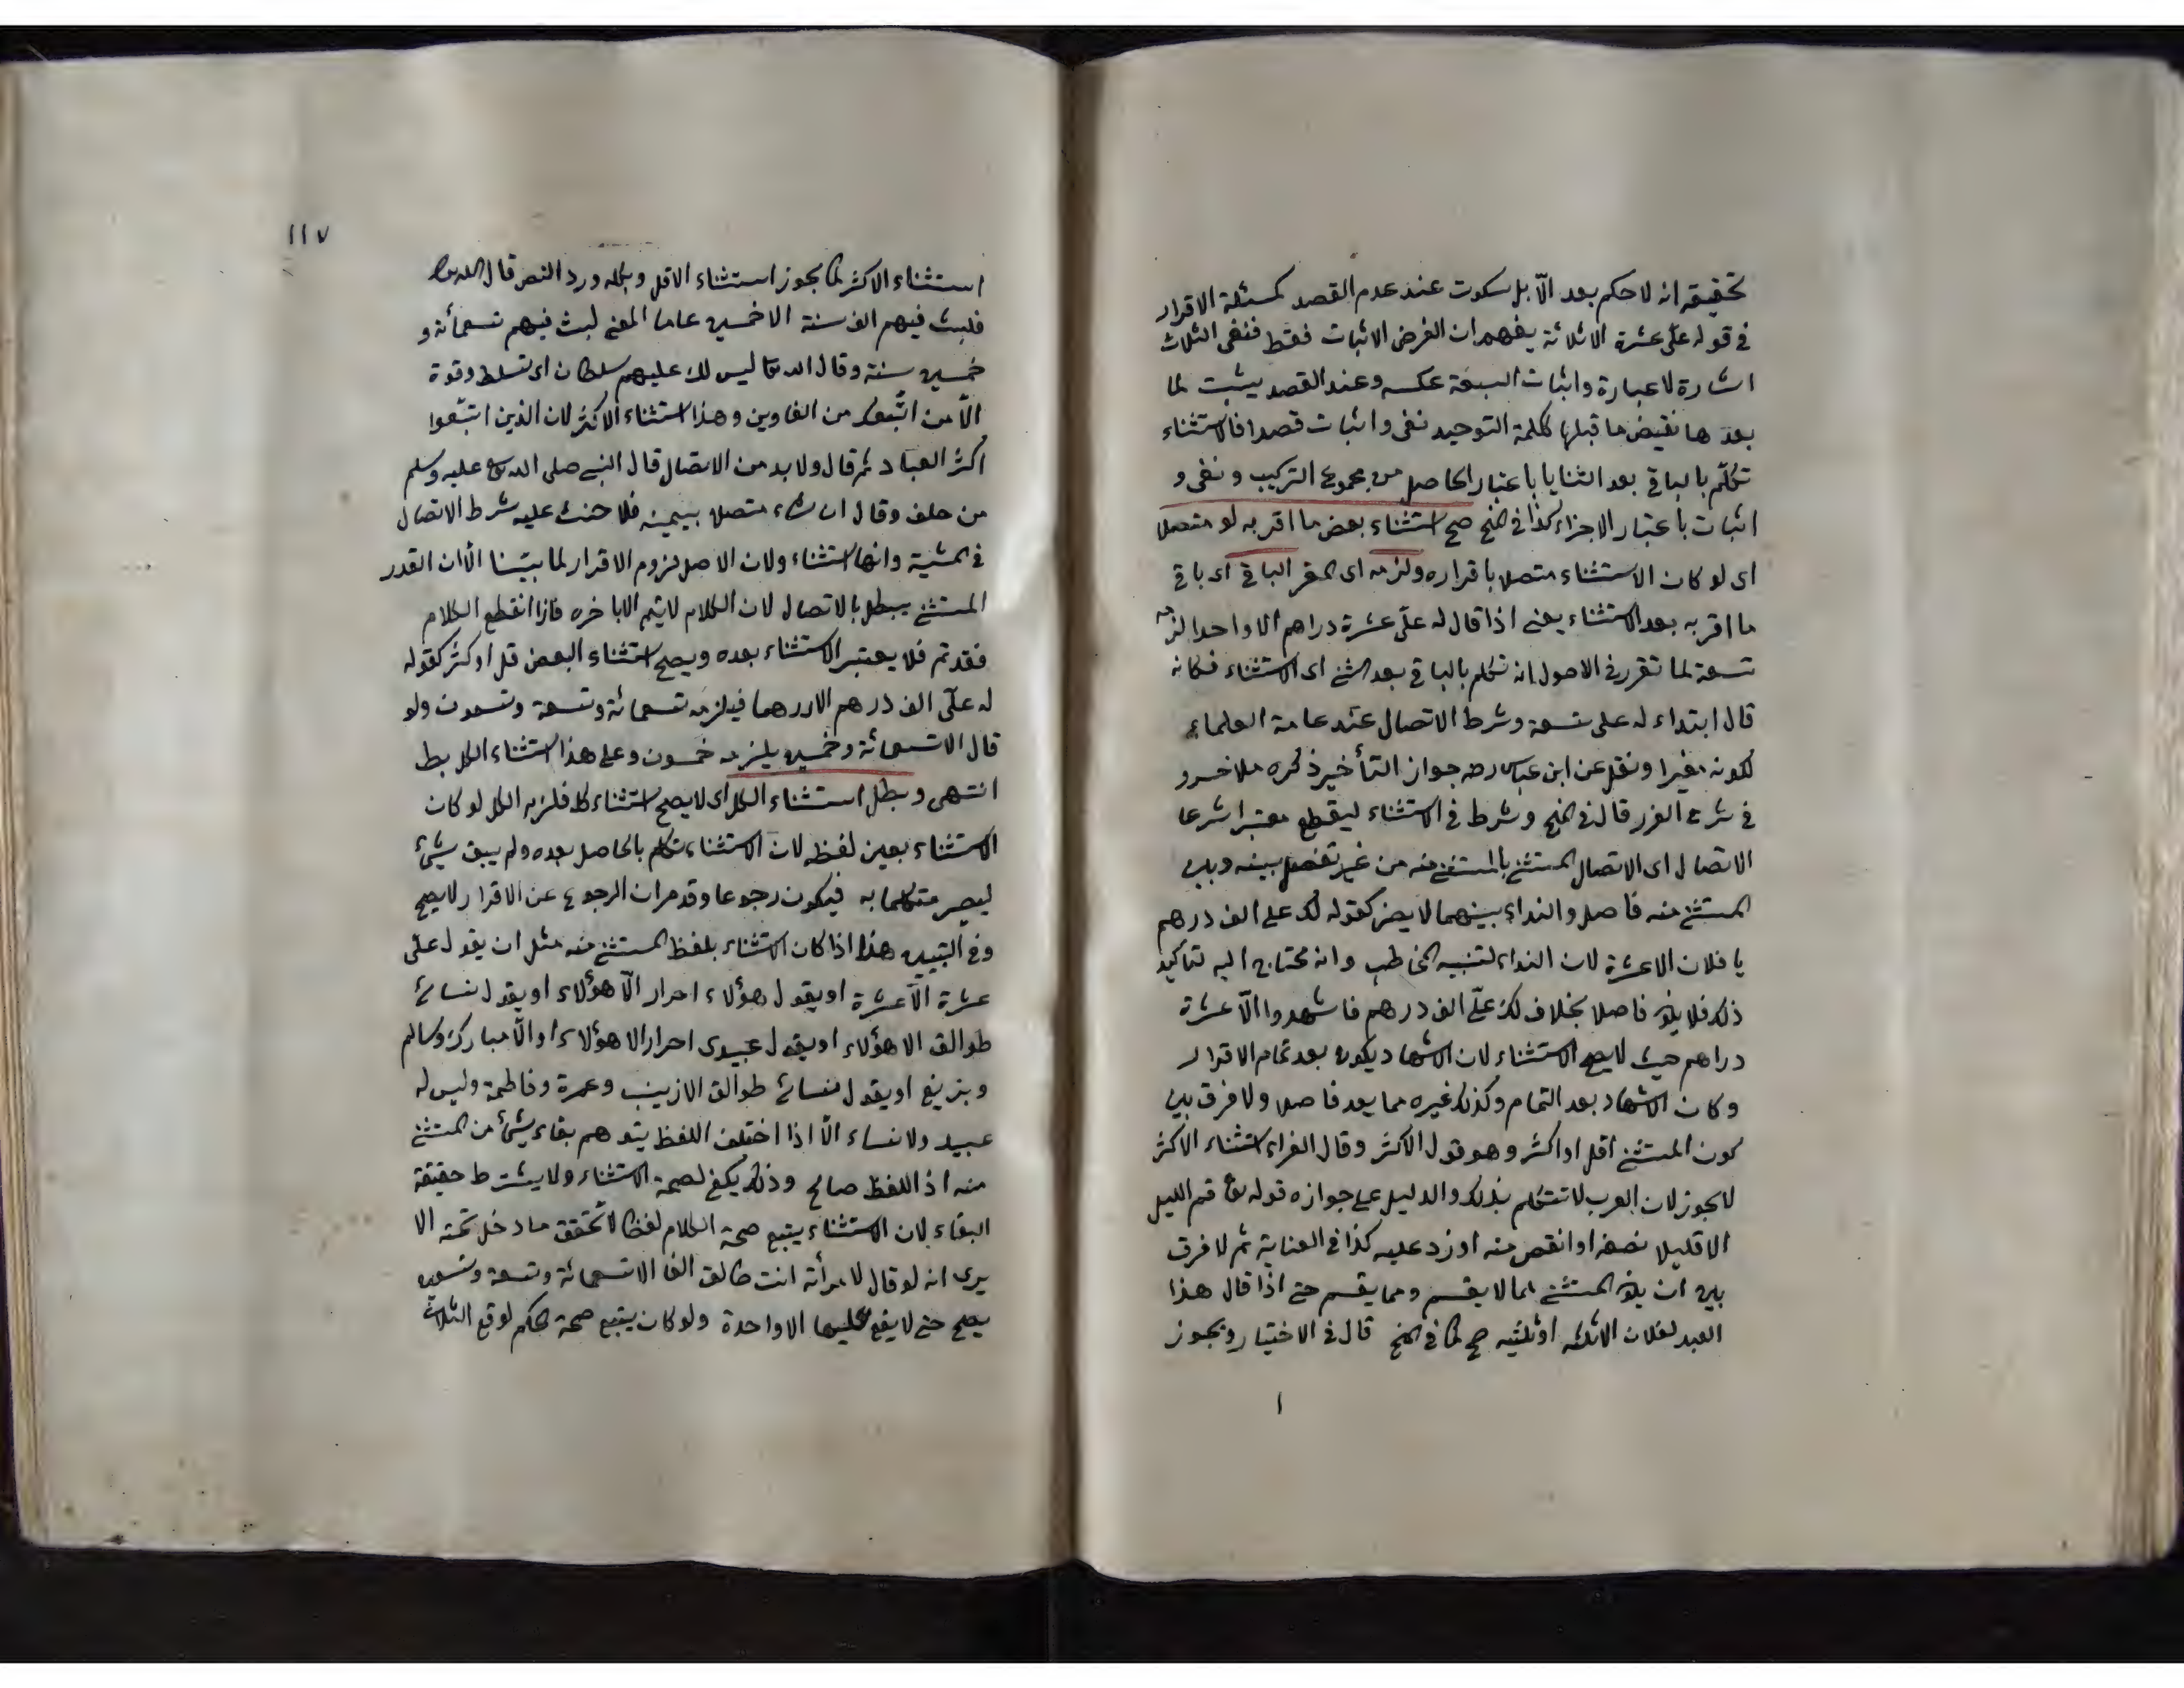 تحقيقه انه لا حكم بعد الّا بل سكوت عند عدم القصد كمسئلة الاقرار
في قوله علىّ عشرة الا ثلاثة يفهم ان الغرض الاثبات فقط فنفى الثلاث
اشارة لا عبارة واثبات السبعة عكسه وعند القصد يثبت لما
بعدها نقيض ما قبلها ككلمة التوحيد نفى واثبات قصدا فالاستثناء
تكلّم بالباقي بعد الثنايا باعتبار الحاصل من مجموع التركيب و نفى و
اثبات باعتبار الاجزاء كذا في المنح صح استثناء بعض ما اقر به لو متصلا
اى لو كان الاستثناء متصلا باقراره ولزمه اى المقر الباقي اى باقي
ما اقر به بعد الاستثناء يعنى اذا قال له علىّ عشرة دراهم الا واحدا لزمه
تسعة لما تقرر في الاصول انه تكلم بالباقي بعد الثنى اى الاستثناء فكانه
قال ابتداء له على تسعة وشرط الاتصال عند عامة العلماء
لكونه مغيرا ونقل عن ابن عباس رضه جواز التأخير ذكره ملا خسرو
في شرح الغرر قال في المنح وشرط في الاستثناء ليقطع معتبرا شرعا
الاتصال اى الاتصال المستثنى بالمستثنى منه من غير تفصل بينه وبين
المستثنى منه فاصل والنداء بينهما لا يضر كقوله لك على الف درهم
يا فلان الا عشرة لان النداء لتنبيه المخاطب وانه محتاج اليه لتاكيد
ذلك فلا يكون فاصلا بخلاف لك علىّ الف درهم فاشهدوا الّا عشرة
دراهم حيث لا يصح الاستثناء لان الاشهاد يكون بعد تمام الاقرار
وكان الاشهاد بعد التمام وكذلك غيره مما يعد فاصلا ولا فرق بين
كون المستثنى اقل او اكثر وهو قول الاكثر وقال الفراء استثناء الاكثر
لا يجوز لان العرب لا تتكلم بذلك والدليل على جوازه قوله تعا قم الليل
الا قليلا نصفه او انقص منه او زد عليه كذا في العناية ثم لا فرق
بين ان يكون المستثنى مما لا يقسم ومما يقسم حتى اذا قال هذا
العبد لفلان الا ثلثه او ثلثيه صح كما في المنح قال في الاختيار ويجوز
١
١١٧
استثناء الاكثر كما يجوز استثناء الاقل وبكله ورد النص قال الله تعا
فلبث فيهم الف سنة الا خمسين عاما المعنى لبث فيهم تسعمائة و
خمسين سنة وقال الله تعا ليس لك عليهم سلطان اى تسلط وقوة
الّا من اتّبعك من الغاوين وهذا استثناء الاكثر لان الذين اتبّعوا
اكثر العباد ثم قال ولا بد من الاتصال قال النبي صلى الله تع عليه وسلم
من حلف وقال ان شاء متصلا بيمينه فلا حنث عليه شرط الاتصال
في المشية وانها استثناء ولان الاصل لزوم الاقرار لما بيّنا الّا ان القدر
المستثنى يبطل بالاتصال لان الكلام لا يتم الا باخره فاذا انقطع الكلام
فقد تم فلا يعتبر الاستثناء بعده ويصح استثناء البعض قل او كثر كقوله
له علّى الف درهم الا درهما فيلزمه تسعمائة وتسعة وتسعون ولو
قال الا تسعمائة وخمسين يلزمه خمسون وعلى هذا استثناء الكل بط
انتهى وبطل استثناء الكل اى لا يصح استثناء كله فلزمه الكل لو كان
الاستثناء بعين لفظه لان الاستثناء تكلم بالحاصل بعده ولم يبق شئ
ليصير متكلما به فيكون رجوعا وقد مر ان الرجوع عن الاقرار لا يصح
وفي التبيين هذا اذا كان الاستثناء بلفظ المستثنى منه مثل ان يقول علىّ
عشرة الّا عشرة او يقول هؤلاء احرار الّا هؤلاء او يقول نسائى
طوالق الا هؤلاء او يقول عبيدى احرار الا هؤلاء او الّا مبارك وسالم
وبزيغ او يقول نسائى طوالق الا زينب وعمرة وفاطمة وليس له
عبيد ولا نساء الّا اذا اختلف اللفظ يتوهم بقاء شئ من المستثنى
منه اذ اللفظ صالح وذلك يكفى لصحة الاستثناء ولا يشترط حقيقة
البقاء لان الاستثناء يتبع صحة الكلام لفظا لا تحقق ما دخل تحته الا
يرى انه لو قال لامرأته انت طالق الفا الا تسعمائة وتسعة وتسعين
يصح حتى لا يقع عليها الا واحدة ولو كان يتبع صحة الحكم لوقع الثلاث